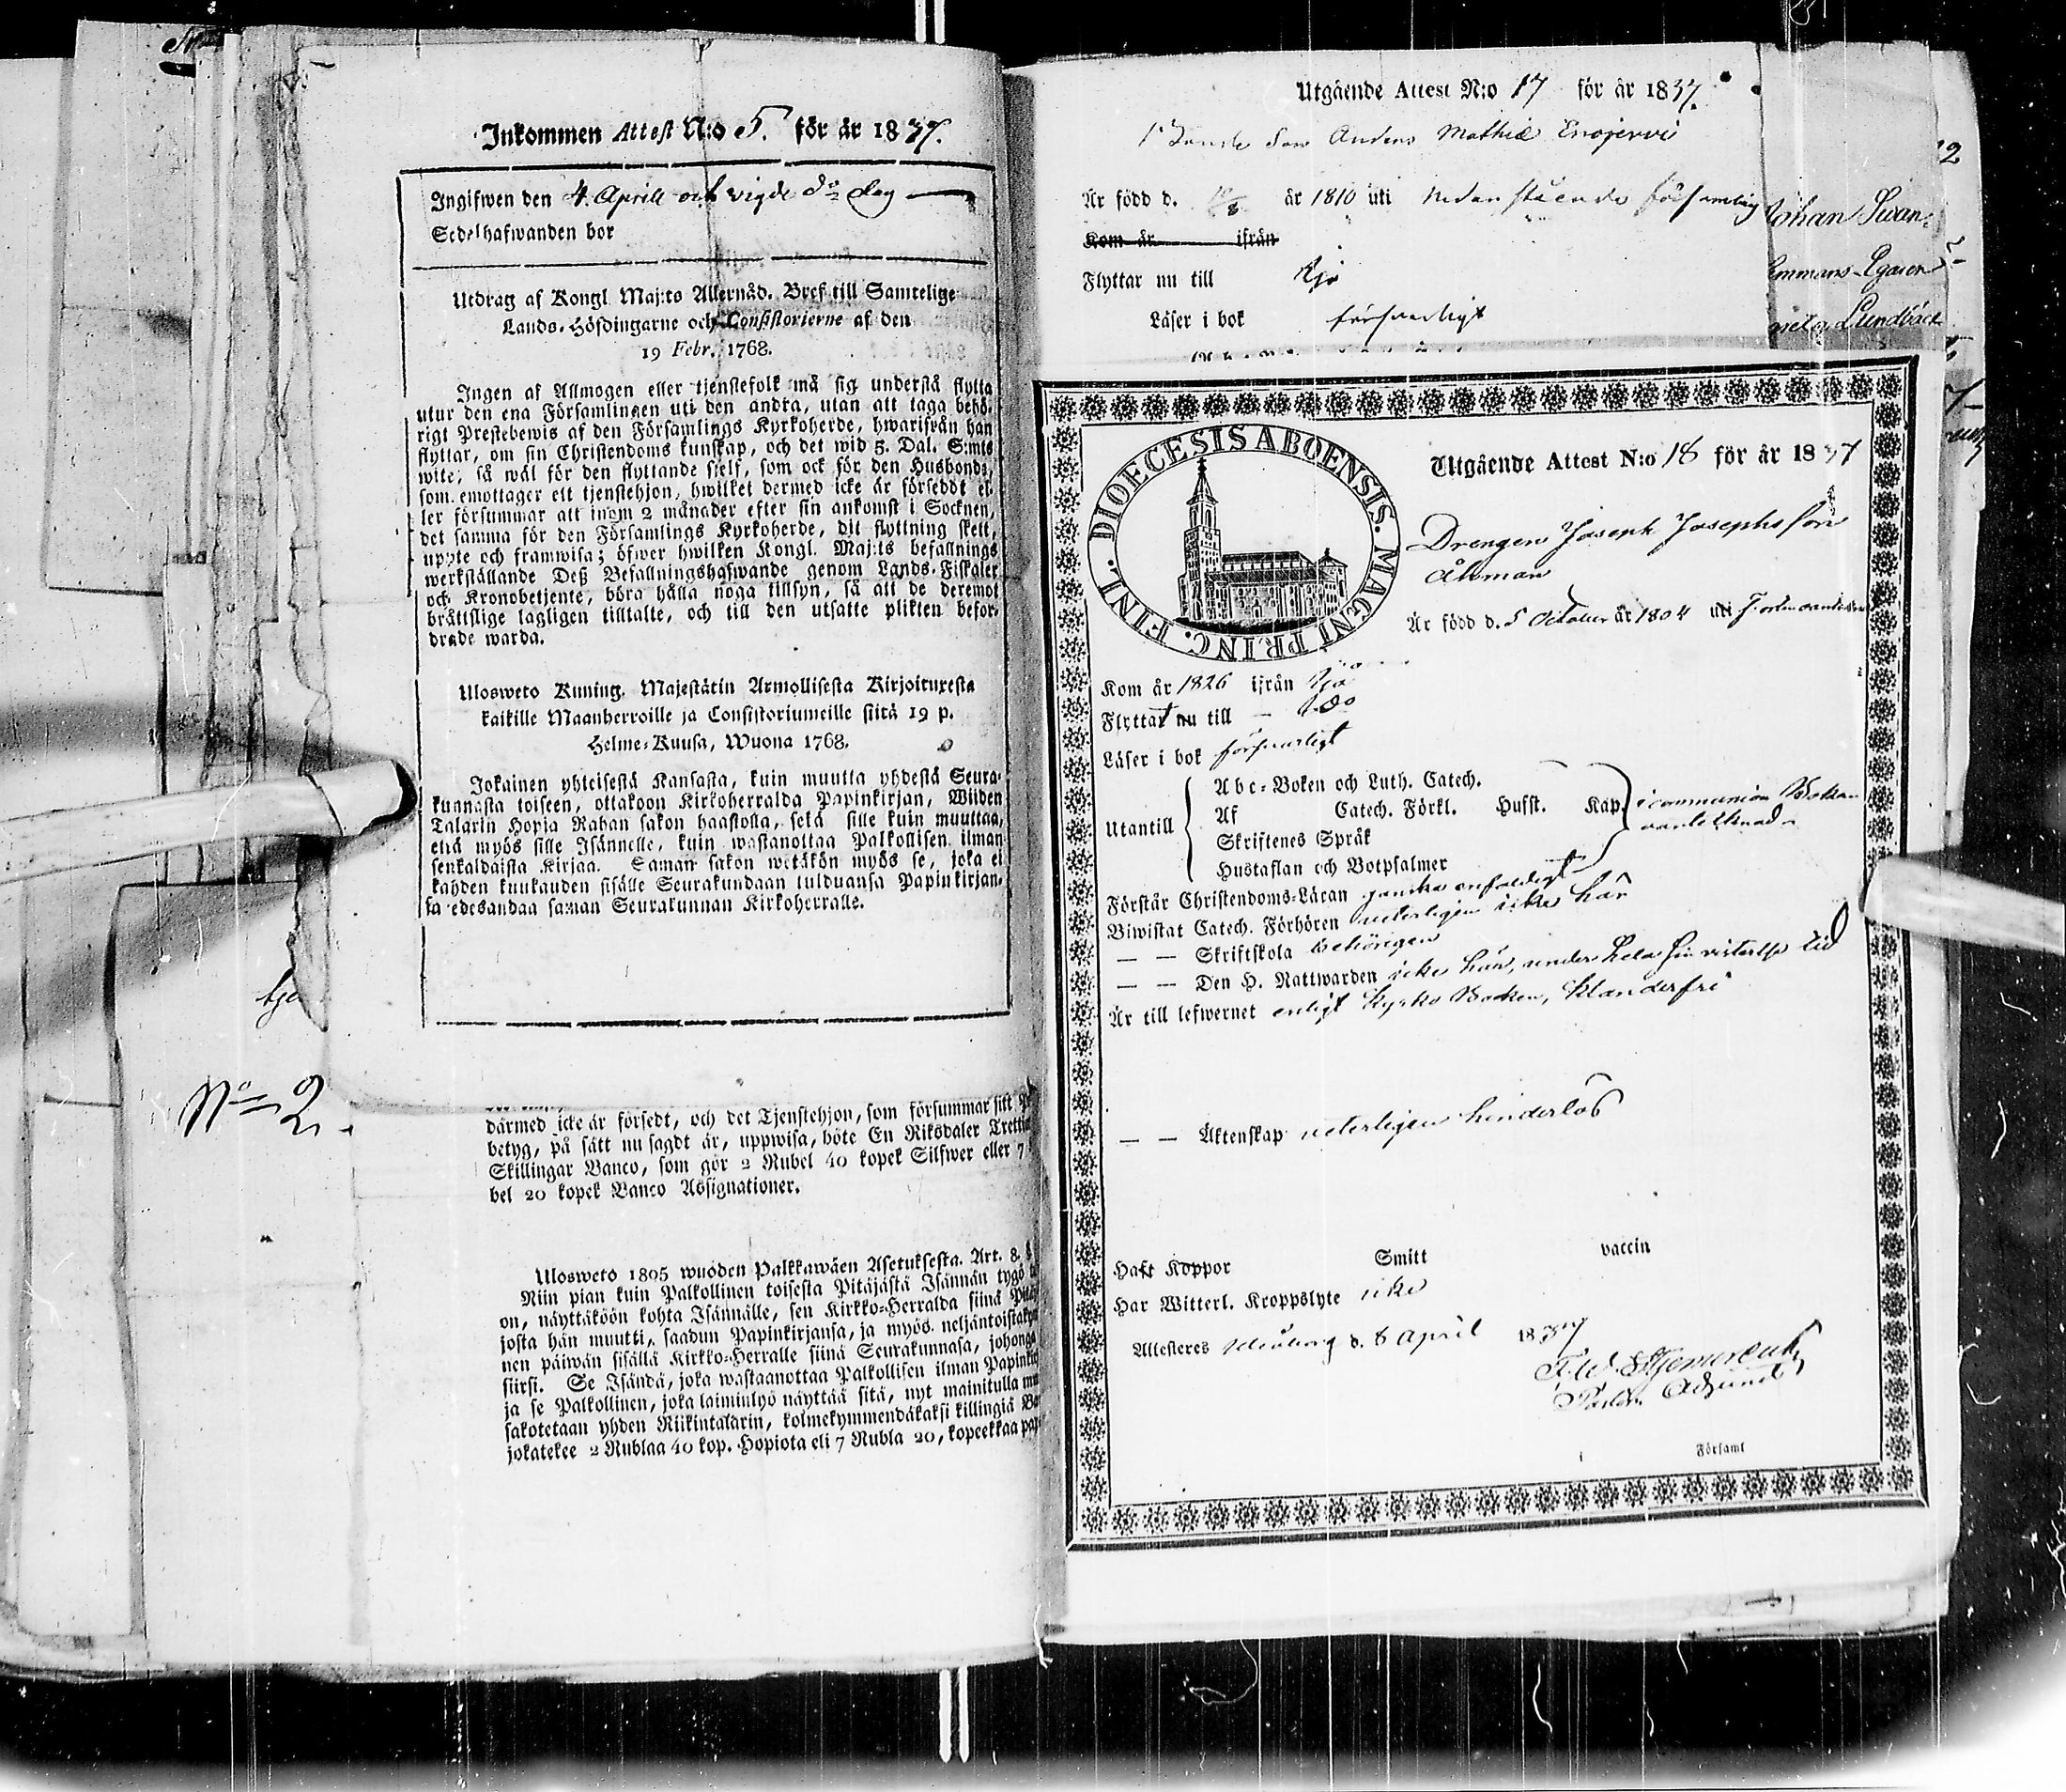 Inkommen Attest N:o 5. för år 1837.
Ingifwen den 4. Aprill och vigde do dag
Sedelhafwanden bor
Utdrag af Kongl. Maj:ts Allernåd. Bref till Samtelige
Lands-Höfdingarne och Consistorierne af den
19 Febr. 1768.
Ingen af Allmogen eller tjenstefolk må sig understå flytta
utur den ena Församlingen uti den andra, utan att taga behö-
rigt Prestebewis af den Församlings Kyrkoherde, hwarifrån han
flyttar, om sin Christendoms kunskap, och det wid 5. Dal. S:mts
wite, så wäl för den flyttande sjelf, som ock för den Husbonde,
som emottager ett tjenstehjon, hwilket dermed icke är försedt el-
ler försummar att inom 2 månader efter sin ankomst i Socknen,
det samma för den Församlings Kyrkoherde, dit flyttning skett,
uppte och framwisa; öfwer hwilken Kongl. Maj:ts befallnings
werkställande Deß Befallningshafwande genom Lands-Fiskaler
och Kronobetjente, böra hålla noga tillsyn, så att de deremot
bråttslige lagligen tilltalte, och till den utsatte plikten befor-
drade warda.
Ulosweto Kuning. Majestätin Armollisesta Kirjoituxesta
kaikille Maanherroille ja Consistoriumeille siitä 19 p.
Helme-Kuusa, Wuona 1768.
Jokainen yhteisestä Kansasta, kuin muutta yhdestä Seura-
kunnasta toiseen, ottakoon Kirkoherralda Papinkirjan, Wiiden
Talarin Hopia Rahan sakon haastolla, sekä sille kuin muuttaa,
että myös sille Isännelle, kuin wastanottaa Palkollisen ilman
senkaldaista Kirjaa. Saman sakon wetäkön myös se, joka ei
kahden kuukauden sisälle Seurakundaan tulduansa Papinkirjan-
sa edesandaa saman Seurakunnan Kirkoherralle.
No 2.
därmed icke är försedt, och det Tjenstehjon, som försummar sitt
betyg, på sätt nu sagdt är, uppwisa, böte En Riksdaler Trettio
Skillingar Banco, som gör 2 Rubel 40 kopek Silfwer eller 7
bel 20 kopek Banco Assignationer.
Ulosweto 1805 wuoden Palkkawäen Asetuksesta. Art. 8.
Niin pian kuin Palkollinen toisesta Pitäjästä Isännän tygö
on, näyttäköön kohta Isännälle, sen Kirkko-Herralda siinä
josta hän muutti, saadun Papinkirjansa, ja myös neljäntoista
nen päiwän sisällä Kirkko-Herralle siinä Seurakunnasa, johonga
siirsi. Se Isändä, joka wastaanottaa Palkollisen ilman
ja se Palkollinen, joka laiminlyö näyttää sitä, nyt mainitulla
sakotetaan yhden Riikintalarin, kolmekymmendäkaksi killingiä
jokatekee 2 Rublaa 40 kop. Hopiota eli 7 Rubla 20, kopeekkaa
Utgående Attest N:o 17 för år 1837.
Son Anders Mathiæ
Är född d. år 1810 uti nedanstående församling
Kom år ifrån
Flyttar nu till Ijo
Läser i bok försvarligt
Johan Swan
Lundbäck
DIOECESIS ABOENSIS. MAGNI PRINC. FINL.
Utgående Attest N:o 18 för år 1837
Drengen Joseph Josephsson
Åhman
Är född d. 5 October år 1804 uti
Kom år 1826 ifrån Ijo
Flyttat nu till — do
Läser i bok försvarligt
Utantill
Abc-Boken och Luth. Catech.
Af Catech. Förkl. Husst. Kap.
Skriftenes Språk
Hustaflan och Botpsalmer
i communion Boken
Förstår Christendoms-Läran ganska enfaldigt
Biwistat Catech. Förhören veterligen icke här
— — Skriftskola behörigen
— — Den H. Nattwarden icke här, under hela sin vistelse tid
Är till lefwernet enligt Kyrko Boken, klanderfri
— — Äktenskap veterligen hinderlös
Haft Koppor Smitt vaccin
Har Witterl. Kroppslyte icke
Attesteras Uleåborg d. 8 April 1837
F. W.
Adjunct
Församl